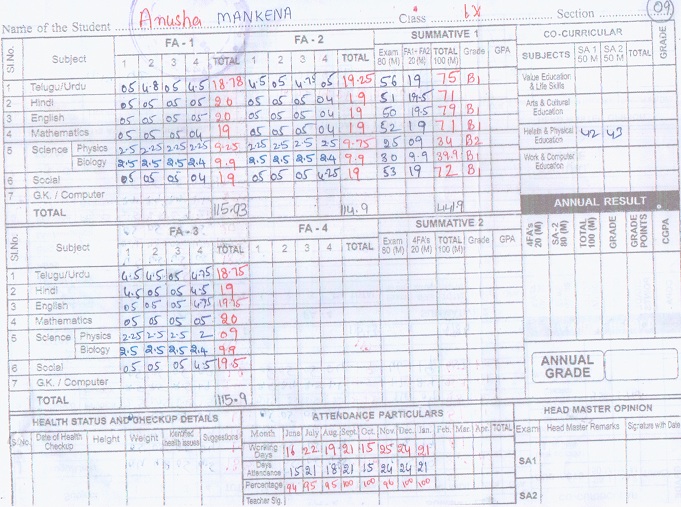 Name of the Student Anusha MANKENA Class Ix Section 09
Sl.No. Subject FA - 1 FA - 2 SUMMATIVE 1 CO-CURRICULAR GRADE
1 2 3 4 TOTAL 1 2 3 4 TOTAL Exam 80 (M) FA1- FA2 20(M) TOTAL 100 (M) Grade GPA SUBJECTS SA 1 50 M SA 2 50 M TOTAL
1 Telugu/Urdu 05 4.8 05 4.5 18.78 4.5 05 4.75 05 19.25 56 19 75 B1 Value Education & Life Skills
2 Hindi 05 05 05 05 20 05 05 05 04 19 51 19.5 71
3 English 05 05 05 05 20 05 05 05 04 19 60 19.5 79 B1 Arts & Cultural Education
4 Mathematics 05 05 05 04 19 05 05 05 04 19 52 19 71 B1 Helath & Physical Education 42 43
5 Science Physics 2.5 2.25 2.25 2.25 9.25 2.5 2.5 2.5 9.75 25 09 34 B2
Biology 2.5 2.5 2.5 2.4 9.9 2.5 2.5 2.5 2.4 9.9 30 9.9 39.9 B1 Work & Computer Education
6 Social 05 05 05 04 19 05 05 05 4.75 19 53 19 72 B1
7 G.K. / Computer
TOTAL 115.93 114.9 441.9
ANNUAL RESULT
Sl. No. Subject FA - 3 FA - 4 SUMMATIVE 2
1 2 3 4 TOTAL 1 2 3 4 TOTAL Exam 80 (M) 4FA's 20 (M) TOTAL 100(M) Grade GPA 4FA's 20 (M) SA-2 80 (M) TOTAL 100 (M) GRADE GRADE POINTS CGPA
1 Telugu/Urdu 4.5 4.5 05 4.75 18.75
2 Hindi 4.5 05 05 4.5 19
3 English 05 05 05 4.75 19.75
4 Mathematics 05 05 05 05 20
5 Science Physics 2.25 2.5 2.5 2 09
Biology 2.5 2.5 2.5 2.4 9.9
6 Social 05 05 05 4.5 19.5
7 G.K. / Computer
TOTAL 115.9
ANNUAL GRADE
HEALTH STATUS AND CHECKUP DETAILS ATTENDANCE PARTICULARS HEAD MASTER OPINION
S.No. Date of Health Checkup Height Weight Identified health issues Suggestions Month June July Aug Sept. Oct. Nov. Dec. Jan. Feb. Mar. Apr. TOTAL Exam Head Master Remarks Signature with Date
Working Days 16 22 19 21 15 25 24 21
Days Attendence 15 21 18 21 15 24 24 21 SA1
Percentage 94 95 95 100 100 96 100 100
Teacher Sig. SA2